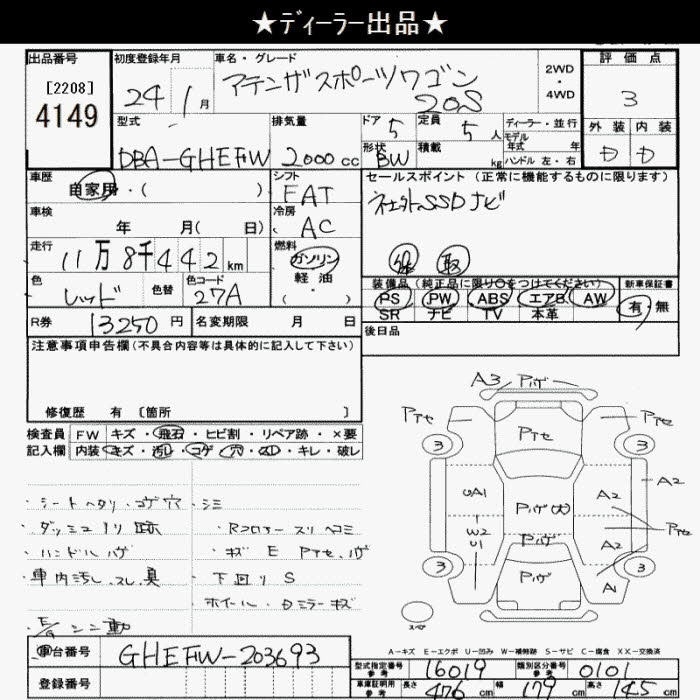 ★ディーラー出品★
出品番号 初度登録年月 車名・グレード 評価点
[2208] 4149
24年1月 アテンザスポーツワゴン 20S 2WD・4WD 3
外装 内装
D D
型式 排気量 ドア 5 定員 5人 ディーラー・並行
モデル年式 年
DBA-GHEFW 2000cc 形状 BW 積載 kg ハンドル 左・右
車歴 シフト セールスポイント(正常に機能するものに限ります)
自家用・( ) FAT 社外SSDナビ
車検 冷房
年 月( 日) AC
走行 燃料
11万8千442km ガソリン 取
色 色替 色コード 軽油 装備品(純正品に限り○をつけてください) 新車保証書
レッド 27A ・( ・ ) PS PW ABS エアB AW 有・無
SR ナビ TV 本革
R券 13250円 名変期限 月 日 後日品
注意事項申告欄(不具合内容等は具体的に記入して下さい)
修復歴 有 [箇所 ]
検査員 FW キズ・飛石・ヒビ割・リペア跡・×要
記入欄 内装 キズ・汚レ・コゲ・穴・スレ・キレ・破レ
・シートヘタリ・コゲ穴・シミ
・ダッシュ ノリ跡
・Rコロアー スリ ヘコミ
・ハンドルハゲ
・キズ E Pアセ、ハゲ
・車内汚し、スレ、臭
・下回り S
・ホイール・Dミラーキズ
A3 Pハゲ
Pアセ Pアセ Pアセ
3 3
UA1 Pハゲ(大) A2 A2
W2 Pハゲ Pアセ
U1 A2
3 Pハゲ 3
A1
スペア
A-キズ E-エクボ U-凹み W-補修跡 S-サビ C-腐食 XX-交換済
車台番号 GHEFW-203693 型式指定番号 参考 16019 類別区分番号 参考 0101
登録番号 車庫証明用 参考 長さ 476cm 幅 179cm 高さ 145cm